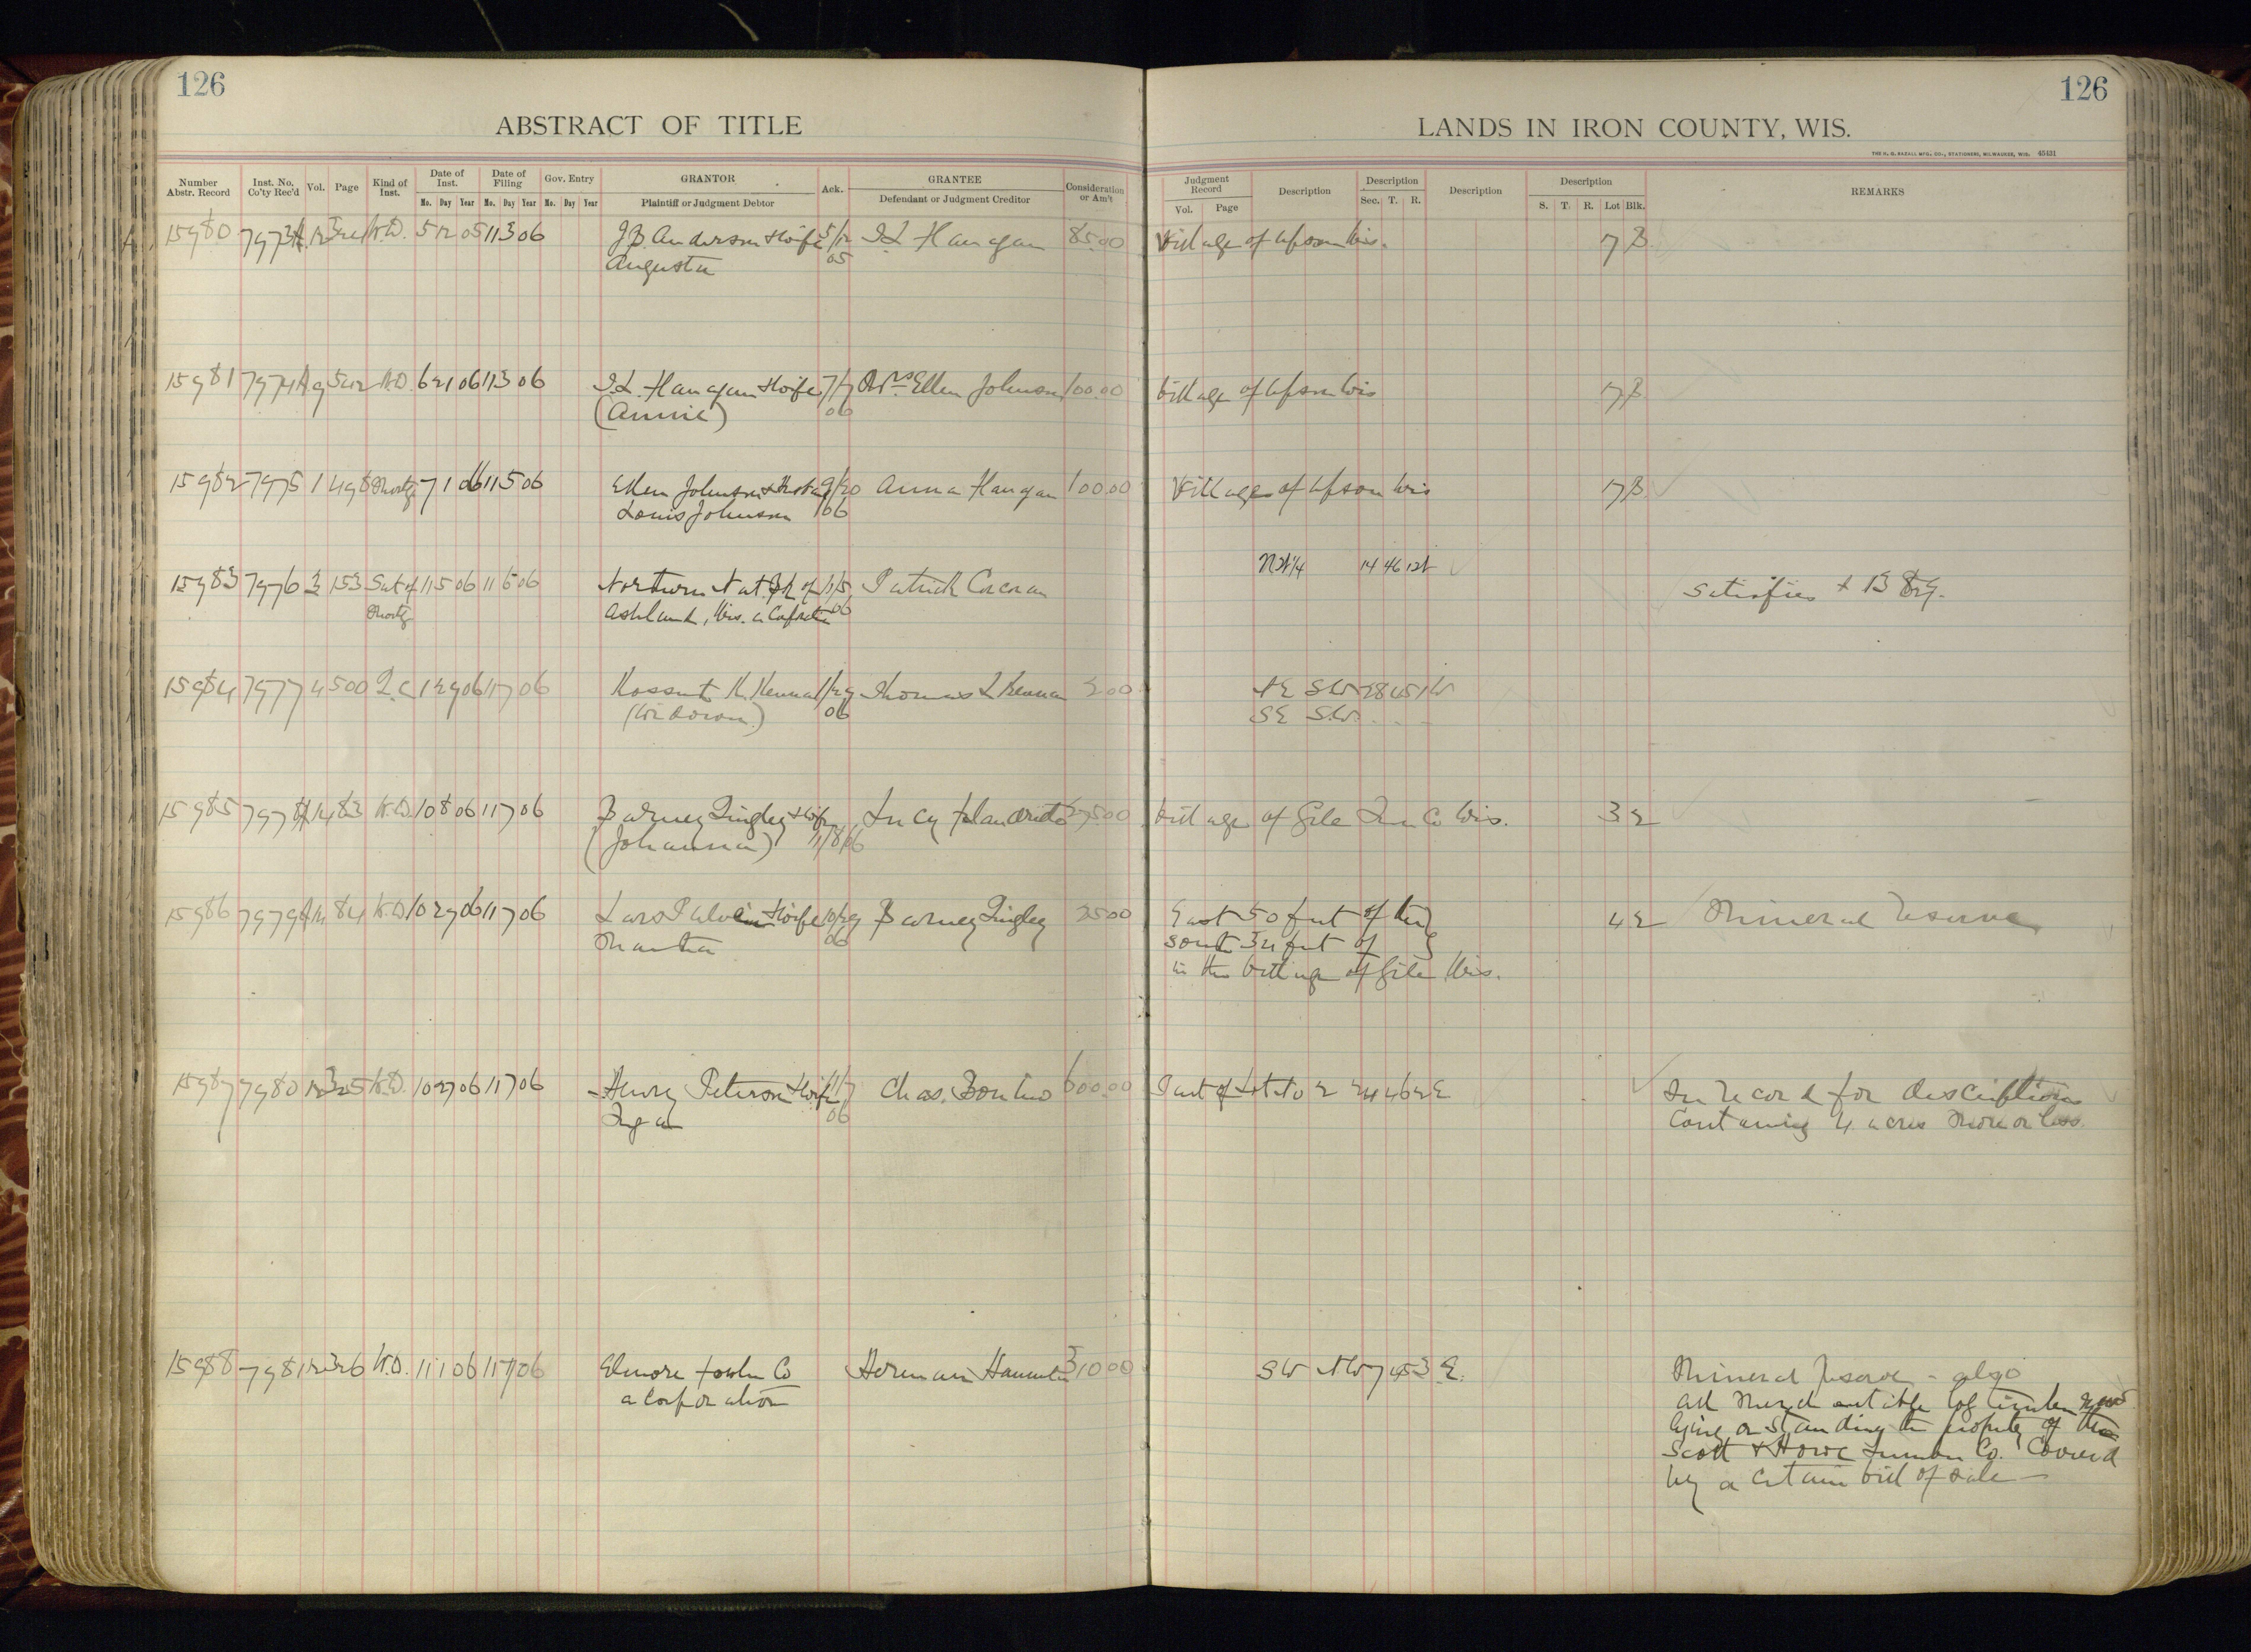 126
126
ABSTRACT OF TITLE
LANDS IN IRON COUNTY, WIS.
THE H. G. RAZALL MFG. CO., STATIONERS, MILWAUKEE, WIS. 45431
Number Abstr. Record
Inst. No. Co'ty Rec'd
Vol.
Page
Kind of Inst.
Date of Inst.
Mo. Day Year
Date of Filing
Mo. Day Year
Gov. Entry
Mo. Day Year
GRANTOR
Plaintiff or Judgment Debtor
Ack.
GRANTEE
Defendant or Judgment Creditor
Consideration or Am't
Judgment Record
Vol. Page
Description
Description
Sec. T. R.
Description
Description
S. T. R. Lot Blk.
REMARKS
15980 7973 12 324 W.D. 5 12 05 11 3 06 J.B. Anderson & wife 5/12 Hanagan 85.00 Village of Upson Wis. 7 B
Augusta 05
15981 7974 9 542 W.D. 6 21 06 11 3 06 Hanagan & wife 7/7 Mrs Ellen Johnson 100.00 Village of Upson Wis 17 B
(Annie) 06
15982 7975 1 498 Mortg 7 1 06 11 5 06 Ellen Johnson & Husband 9/20 Anna Hanagan 100.00 Village of Upson Wis 17 B
Louis Johnson 06
NW 1/4 14 46 1W
15983 7976 3 153 Sat of 11 5 06 11 6 06 Northern Nat. Bk of 11/5 Patrick Corcoran Satisfies
Mortg Ashland, Wis. a Corporation 06
15984 7977 4 500 Q.C 1 29 06 11 7 06 K. Kennan 1/29 Thomas L Kennan 2 00 NE SW 28 45 1W
06 SE SW
15985 7978 14 83 W.D. 10 8 06 11 7 06 Barney Tingley & wife Lucy 275.00 Village of Gile Iron Co Wis. 3 2
(Johanna)
15986 7979 14 84 W.D. 10 29 06 11 7 06 Lars & wife 10/29 Barney Tingley 25 00 East 50 feet of the 4 2 Mineral reserve
Martha 06 South 34 feet of
in the Village of Gile Wis.
15987 7980 12 325 W.D. 10 27 06 11 7 06 Henry Peterson & wife 11/7 Chas. 600.00 Part of Lot No 2 24 46 2E See record for description
06 Containing 4 acres more or less.
15988 7981 12 326 W.D. 11 1 06 11 7 06 Elmore Co Herman 310 00 SW NW 7 45 3 E. Mineral Reserve - also
a Corporation all merchantable log timber now
lying or standing the property of the
Scott & Howe Lumber Co. Covered
by a certain bill of sale —